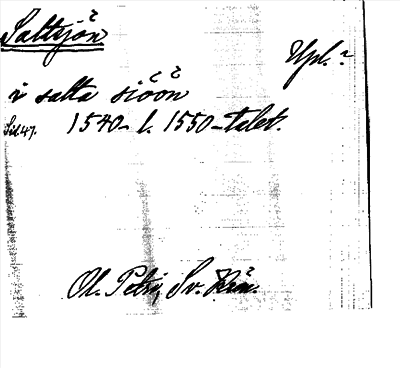 Saltsjön
Upl.?
i salta siöön
Sid 47. 1540- l. 1550-talet.
Ol. Petri, Sv. Krön.